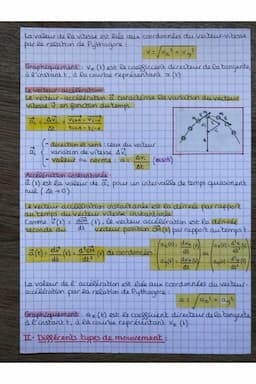 La valeur de la vitesse est liée aux coordonnées du vecteur-vitesse
par la relation de Pythagore :
v = √vx² + vy²
Graphiquement : vx(t) est le coefficient directeur de la tangente,
à l'instant t, à la courbe représentant x(t)
Le vecteur-accélération
Le vecteur-accélération a⃗ caractérise la variation du vecteur
vitesse v⃗ en fonction du temps.
direction et sens : ceux du vecteur
variation de vitesse Δv⃗i
valeur ou norme : a = Δvi/Δt
Accélération instantanée :
a⃗(t) est la valeur de a⃗i pour un intervalle de temps quasiment
nul (Δt→0)
Le vecteur accélération instantanée est la dérivée par rapport
au temps du vecteur vitesse instantanée.
Comme v⃗(t) = dOM⃗/dt (t), le vecteur accélération est la dérivée
seconde du vecteur position OM⃗(t) par rapport au temps.
a⃗(t) = dv⃗/dt (t) = d²OM⃗/dt² (t) de coordonnées
La valeur de l'accélération est liée aux coordonnées du vecteur-
accélération par la relation de Pythagore :
a = √ax² + ay²
Graphiquement : ax(t) est le coefficient directeur de la tangente,
à l'instant t, à la courbe représentant vx(t).
II - Différents types de mouvement :